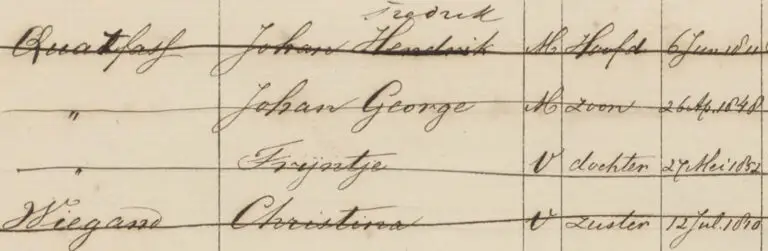 Fredrik
Quatfass Johan Hendrik M Hoofd 6 Jun 181
" Johan George M zoon 26 Ap. 1848
" Trijntje V dochter 27 Mei 1852
Wiegand Christina V zuster 12 Jul. 1810